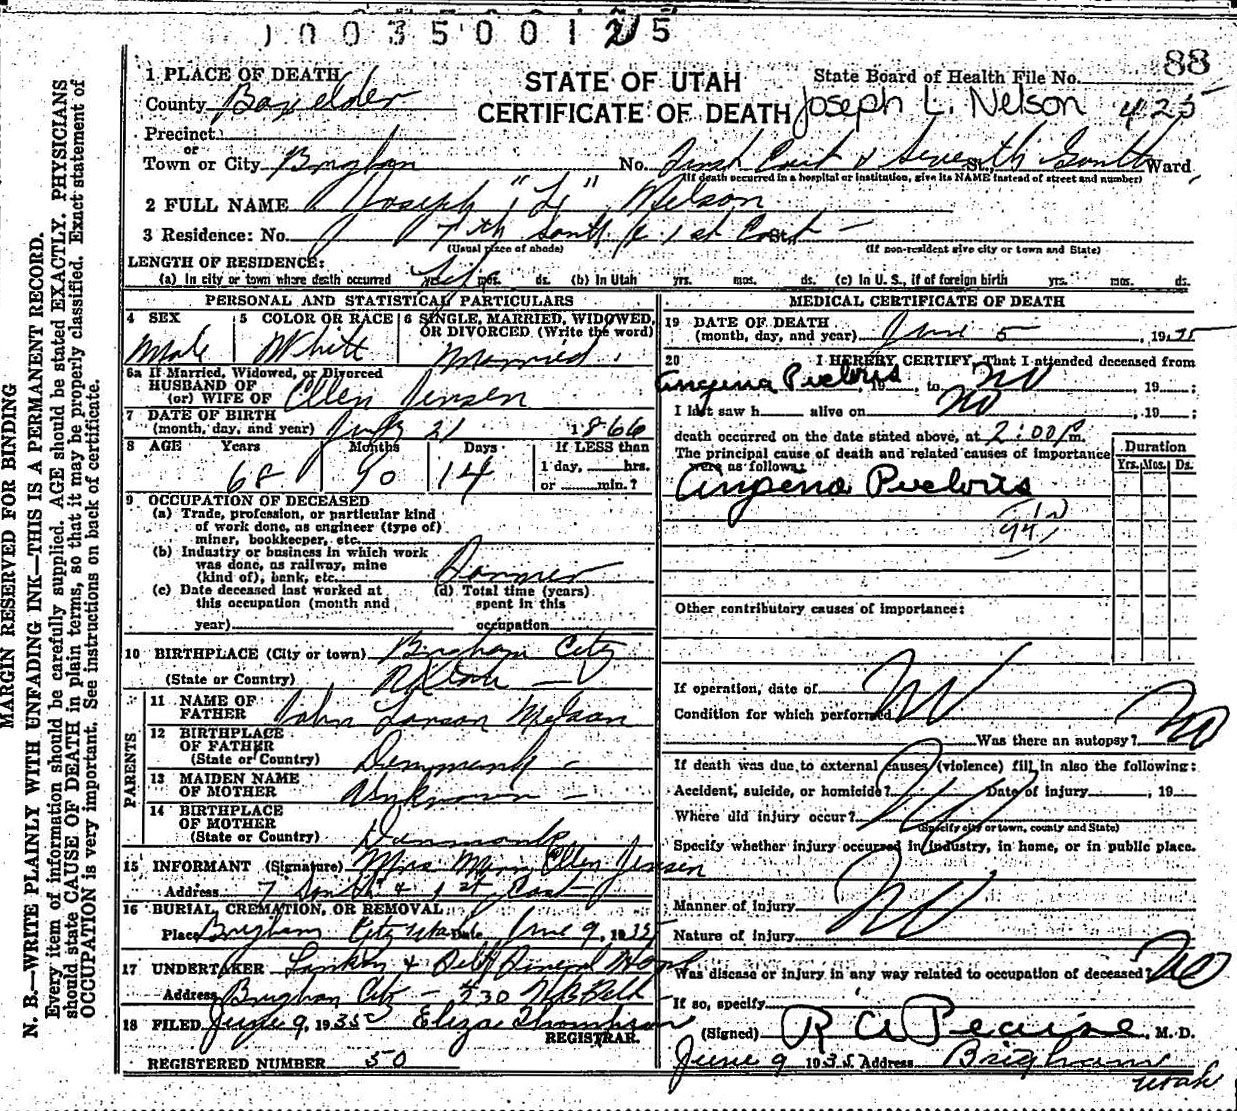 1003500125
88
1 PLACE OF DEATH
STATE OF UTAH
CERTIFICATE OF DEATH
State Board of Health File No.
Joseph L. Nelson 425
County Box elder
Precinct
or
Town or City Brigham No. First East & Seventh South St., Ward
(If death occurred in a hospital or institution, give its NAME instead of street and number)
2 FULL NAME Joseph "L" Nelson
3 Residence: No. 7th South & 1st East St.
(Usual place of abode) (If non-resident give city or town and State)
LENGTH OF RESIDENCE:
(a) In city or town where death occurred Life yrs. mos. ds. (b) In Utah yrs. mos. ds. (c) In U. S., if of foreign birth yrs. mos. ds.
PERSONAL AND STATISTICAL PARTICULARS
4 SEX
Male
5 COLOR OR RACE
White
6 SINGLE, MARRIED, WIDOWED,
OR DIVORCED (Write the word)
Married.
6a If Married, Widowed, or Divorced
HUSBAND OF
(or) WIFE OF Ellen Jensen
7 DATE OF BIRTH
(month, day, and year) July 21 1866
8 AGE Years Months Days If LESS than
68 14 1 day, hrs.
or min.?
9 OCCUPATION OF DECEASED
(a) Trade, profession, or particular kind
of work done, as engineer (type of)
miner, bookkeeper, etc.
(b) Industry or business in which work
was done, as railway, mine
(kind of), bank, etc.
(c) Date deceased last worked at
this occupation (month and
year)
(d) Total time (years)
spent in this
occupation
10 BIRTHPLACE (City or town) Brigham City
(State or Country)
PARENTS
11 NAME OF
FATHER John Larson Nelson
12 BIRTHPLACE
OF FATHER
(State or Country) Denmark
13 MAIDEN NAME
OF MOTHER Unknown
14 BIRTHPLACE
OF MOTHER
(State or Country) Denmark
15 INFORMANT (Signature) Mrs Mary Ellen Jensen
Address 7 South & 1st East
16 BURIAL, CREMATION, OR REMOVAL
Place Brigham City Utah Date June 9, 1935
17 UNDERTAKER
Address Brigham City - 230
18 FILED June 9, 1935 Eliza Thompson
REGISTRAR.
REGISTERED NUMBER 50
MEDICAL CERTIFICATE OF DEATH
19 DATE OF DEATH
(month, day, and year) June 5, 1935
20 I HEREBY CERTIFY, That I attended deceased from
Angena Pectoris, 19 to no, 19 ;
I last saw h alive on no, 19 ;
death occurred on the date stated above, at 2:00 P m.
The principal cause of death and related causes of importance
were as follows:
Angena Pectoris
Duration
Yrs. Mos. Ds.
94
Other contributory causes of importance:
If operation, date of no
Condition for which performed
Was there an autopsy? no
If death was due to external causes (violence) fill in also the following:
Accident, suicide, or homicide? Date of injury, 19
Where did injury occur? no
(Specify city or town, county and State)
Specify whether injury occurred in industry, in home, or in public place.
Manner of injury no
Nature of injury
Was disease or injury in any way related to occupation of deceased? no
If so, specify
(Signed) R A Pearse, M. D.
June 9 1935 Address Brigham
Utah
MARGIN RESERVED FOR BINDING
N. B.—WRITE PLAINLY WITH UNFADING INK—THIS IS A PERMANENT RECORD.
Every item of information should be carefully supplied. AGE should be stated EXACTLY. PHYSICIANS
should state CAUSE OF DEATH in plain terms, so that it may be properly classified. Exact statement of
OCCUPATION is very important. See instructions on back of certificate.